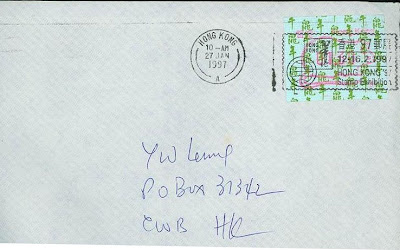 HONG KONG
10-AM
27 JAN
1997
A
HONG KONG
香港 '97
12-16.2.1997
HONG KONG '97
Stamp Exhibition
YW Leung
P O Box 31342
CWB HK